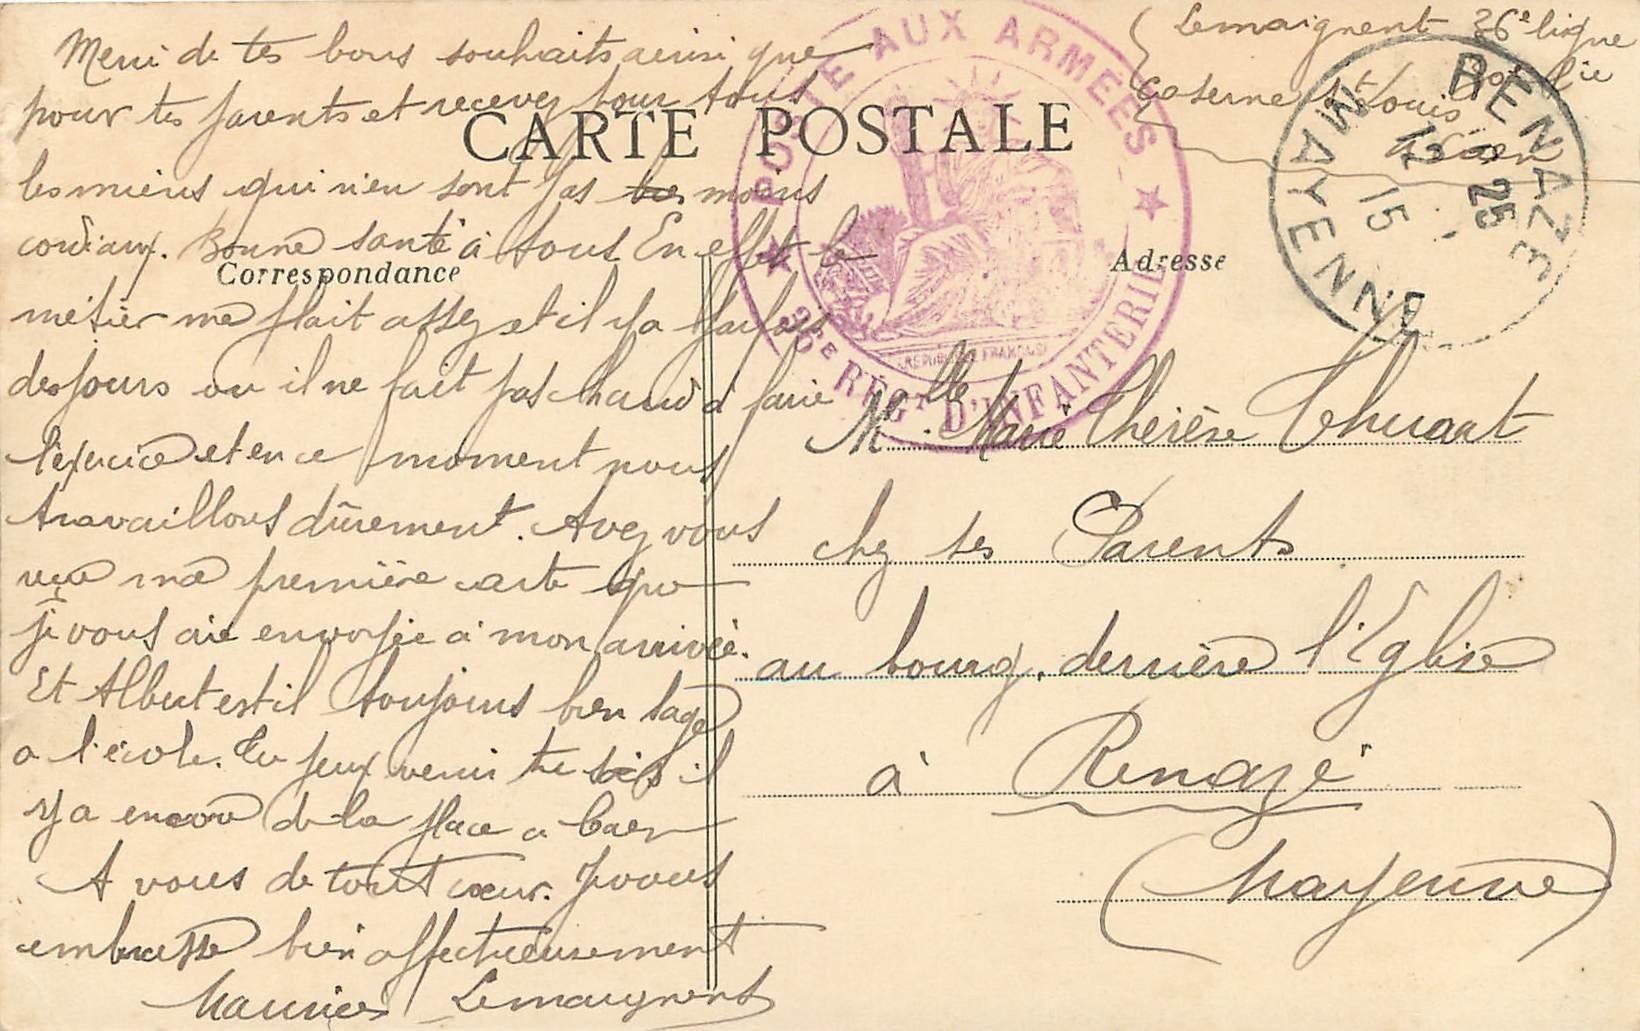 Lemaignent 36e ligne
30e Cie
Caserne St Louis
à Caen
Merci de tes bons souhaits ainsi que
pour tes parents et recevez pour tous
les miens qui n'en sont pas moins
cordiaux. Bonne santé à tous En effet le
métier me plait assez et il y a parfois
des jours ou il ne fait pas chaud à faire
l'exercice et en ce moment nous
travaillons dûrement. Avez vous
reçu ma première carte que
je vous aie envoyée à mon arrivée.
Et Albert est il toujours bien sage
a l'école. Tu peux venir tu sais il
y a encore de la place a Caen
A vous de tout cœur. Je vous
embrasse bien affectueusement
Maurice Lemaignent
CARTE POSTALE
Correspondance
Adresse
POSTE AUX ARMÉES
36E RÉGT D'INFANTERIE
RÉPUBLIQUE FRANÇAISE
RENAZÉ
MAYENNE
12 25
15
Melle Marie Thérèse Thuart
chez ses Parents
au bourg, derrière l'Eglise
à Renazé
(Mayenne)